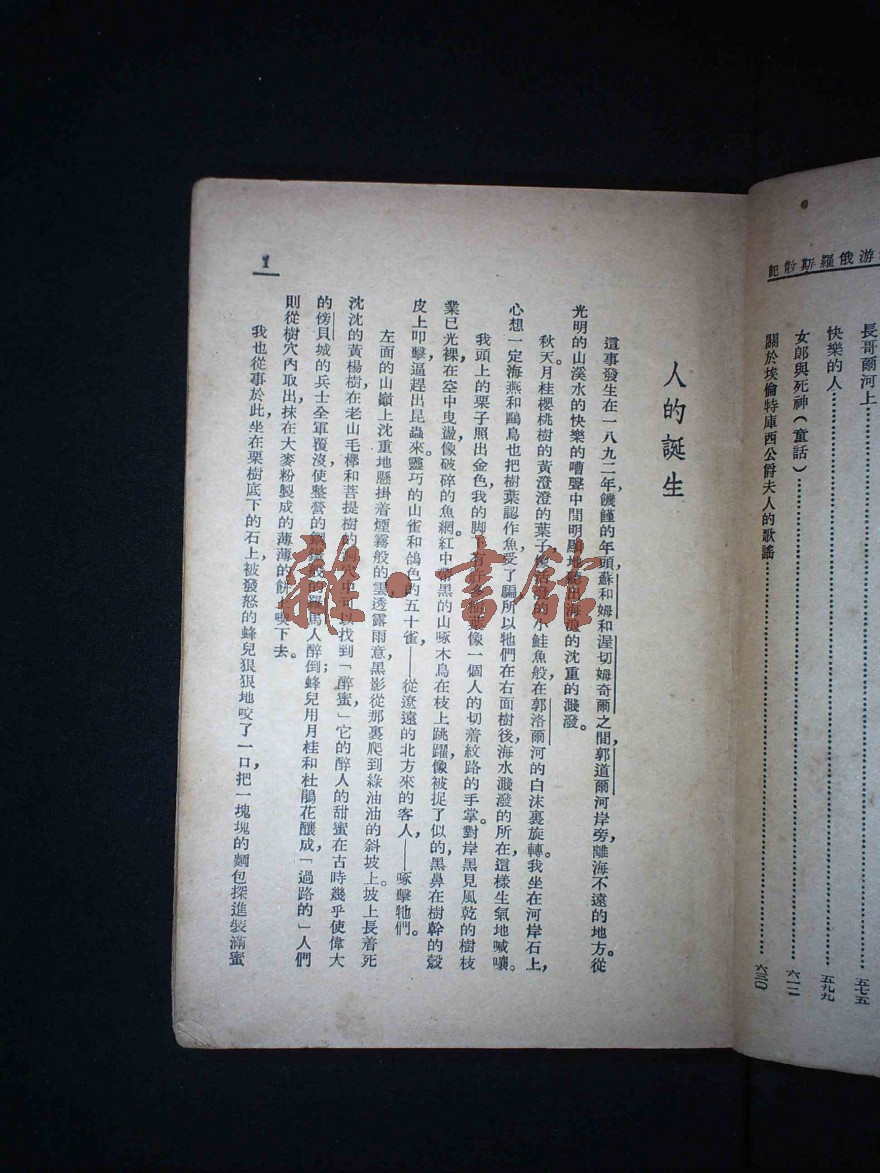 游俄羅斯散記
長哥爾河上 五七五
快樂的人 五九九
女郎與死神（童話） 六一二
關於埃倫特庫西公爵夫人的歌謠 六三〇
1
人的誕生
這事發生在一八九二年饑饉的年頭，蘇和姆和渥切姆奇爾之間，郭道爾河岸旁，離海不遠的地方。從
光明的山溪水的快樂的嘈聲中間明顯地聽出海浪的沈重的濺潑。
秋天。月桂櫻桃樹的黃澄澄的葉子，像活潑的小鮭魚般在郭洛爾河的白沫裏旋轉。我坐在河岸石上，
心想一定海燕和鷗鳥也把樹葉認作魚，受了騙，所以牠們在右面樹後，海水濺潑的所在，這樣生氣地喊嚷。
我頭上的栗子照出金色，我的脚下有許多樹葉，像一個人的切着紋路的手掌。對岸黑見風乾的樹枝
業已光裸，在空中曳盪，像破碎的魚網，紅中帶黑的山啄木鳥在枝上跳躍，像被捉了似的，黑鼻在樹幹的殼
皮上叩擊，逼趕出昆蟲來。靈巧的山雀和鴿色的五十雀——從遼遠的北方來的客人，——啄擊牠們。
左面的山巔上沈重地懸掛着煙霧般的雲，透露雨意，黑影從那裏爬到綠油油的斜坡上，坡上長着死
沈沈的黃楊樹，在老山毛櫸和菩提樹的洞穴中可以找到「醉蜜」，它的醉人的甜蜜在古時幾乎使偉大
的傍貝城的兵士全軍覆沒，使整營的鋼鐵般的羅馬人醉倒；蜂兒用月桂和杜鵑花釀成，「過路的」人們
則從樹穴內取出，抹在大麥粉製成的薄薄的餅上喫下去。
我也從事於此，坐在栗樹底下的石上，被發怒的蜂兒狠狠地咬了一口，把一塊塊的麵包探進裝滿蜜